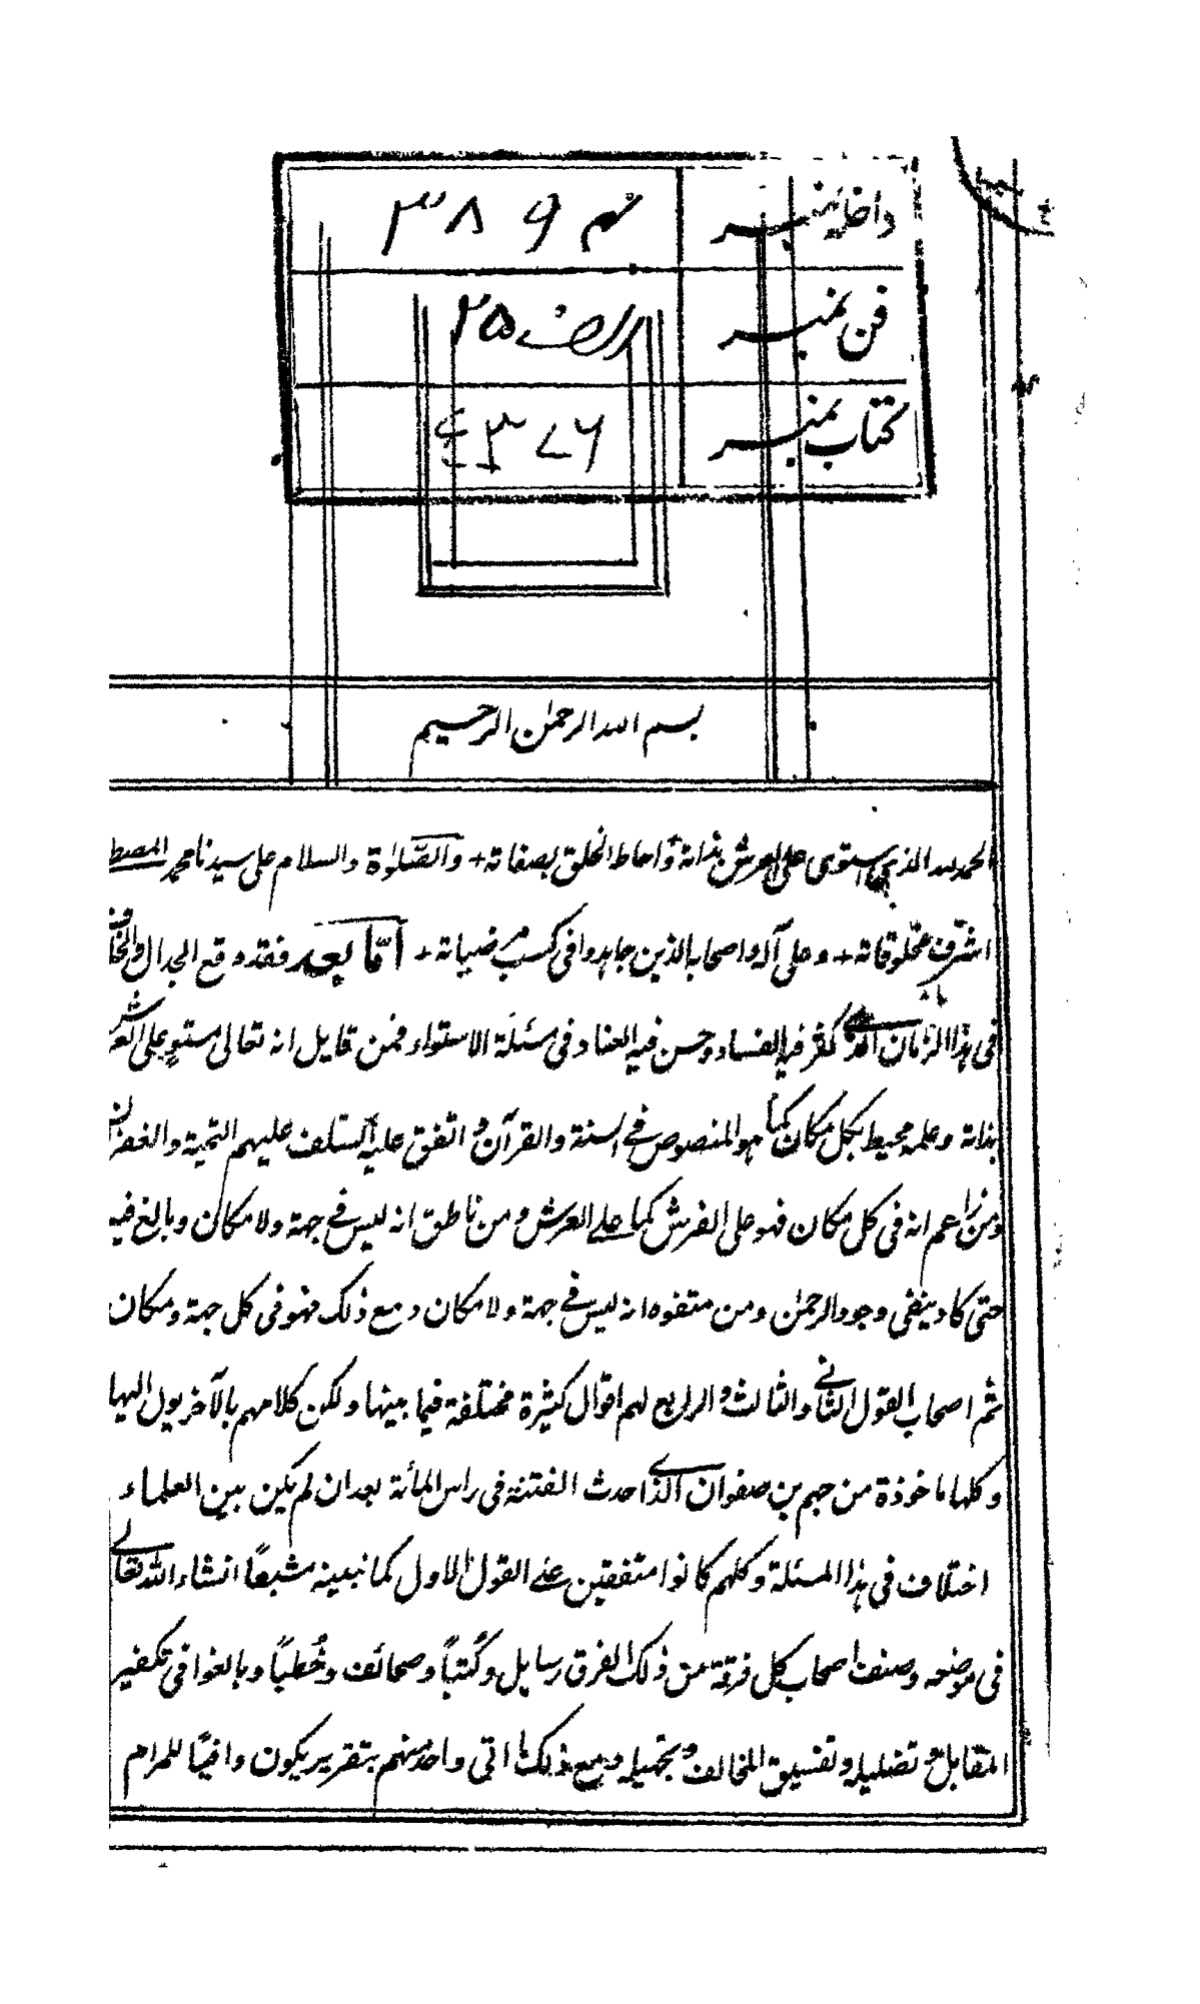 داخلہ نمبر ٣٨٩٤
فن نمبر الف ٢٥
کتاب نمبر ٣٧٦
بسم الله الرحمٰن الرحيم
الحمد لله الذي استوى على العرش بذاته واحاط الخلق بصفاته + والصّلوٰة والسلام على سيدنا محمد المصطفى
اشرف مخلوقاته + وعلى آله واصحابه الذين جاهدوا فى كسب مرضياته + امّا بعد فقد وقع الجدال والخلاف
فى هذا الزمان الذي كثر فيه الفساد وحسن فيه العناد فى مسئلة الاستواء فمن قايل انه تعالى مستوٍ على العرش
بذاته وعلمه محيط بكل مكان كما هو المنصوص في السنة والقرآن و اتفق عليه السّلف عليهم التحية والغفران
ومن زاعم انه فى كل مكان فهو على الفرش كما على العرش ومن ناطق انه ليس في جهة ولا مكان وبالغ فيه
حتى كاد ينفى وجود الرحمٰن ومن متفوه انه ليس في جهة ولا مكان ومع ذلك فهو فى كل جهة ومكان
ثم اصحاب القول الثاني والثالث والرابع لهم اقوال كثيرة مختلفة فيما بينها ولكن كلامهم بالآخر يول اليها
وكلها ماخوذة من جهم بن صفوان الذي احدث الفتنة فى راس المأئة بعد ان لم يكن بين العلماء
اختلاف فى هذا المسئلة وكلهم كانوا متفقين على القول الاول كما نبينه مشبعاً انشاء الله تعالى
فى موضعه وصنف اصحاب كل فرقة من ذلك الفرق رسايل وكُتباً وصحائف وخُطباً وبالغوا فى تكفير
المقابل و تضليله وتفسيق المخالف و تجهيله ومع ذلك ما اتى واحد منهم بتقرير يكون وافيًا للمرام